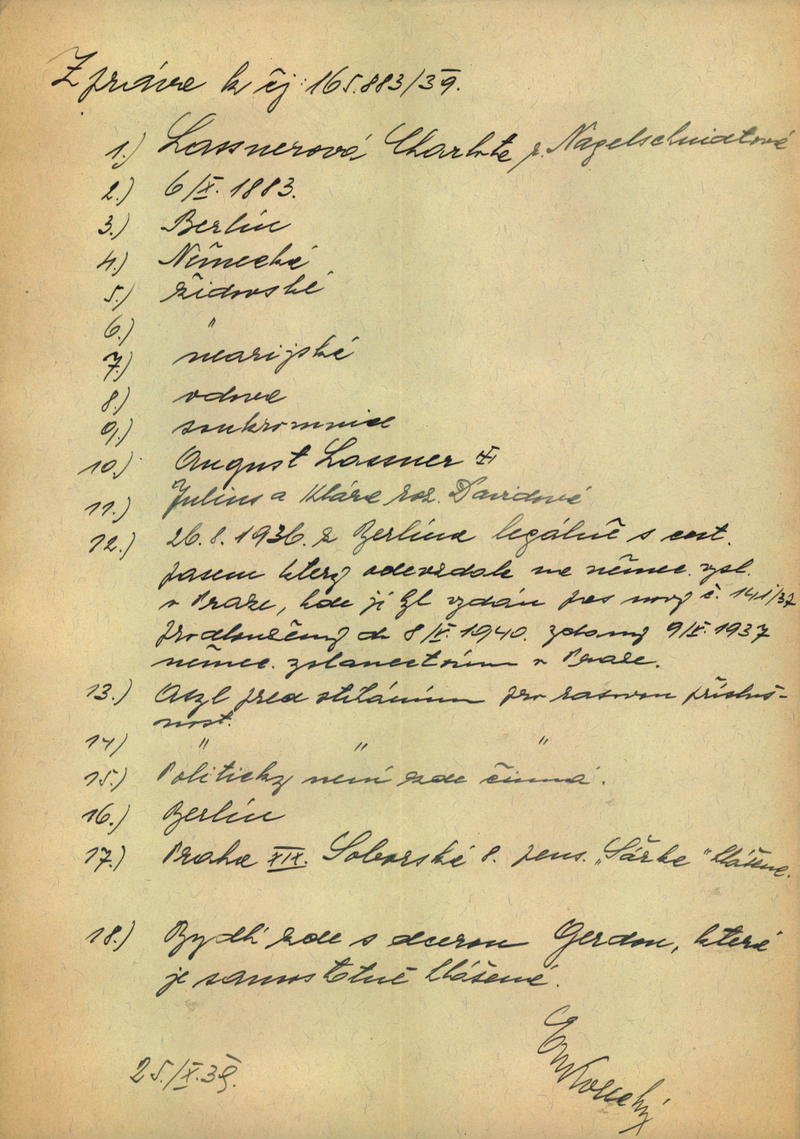 Zpráva k čj: 165.883/39.
1.) Lassnerová Charlota r. Nagelschmidtová
2.) 6/X. 1883.
3.) Berlín
4.) Německá
5.) židovská
6.) "
7.) nearijská
8.) vdova
9.) soukromnice
10.) August Lassner
11.) Julius a Klára roz. Davidová
12.) 26.8.1936. z Berlína legálně s cest.
pasem který odevzdala na němec. vysl.
v Praze, kde jí byl vydán pas nový č. 141/37
prodloužený do 8/X. 1940. vydaný 9/X. 1937
němec. vyslanectvím v Praze.
13.) Asyl před stíháním pro rasovou přísluš-
nost.
14) " " "
15.) Politicky není zde činná.
16.) Berlín
17.) Praha XIX. Soborská 8. pens. „Šárka" hlášena.
18.) Bydlí zde s dcerou Gerdou, která
je samostatně hlášená.
25./X.39.